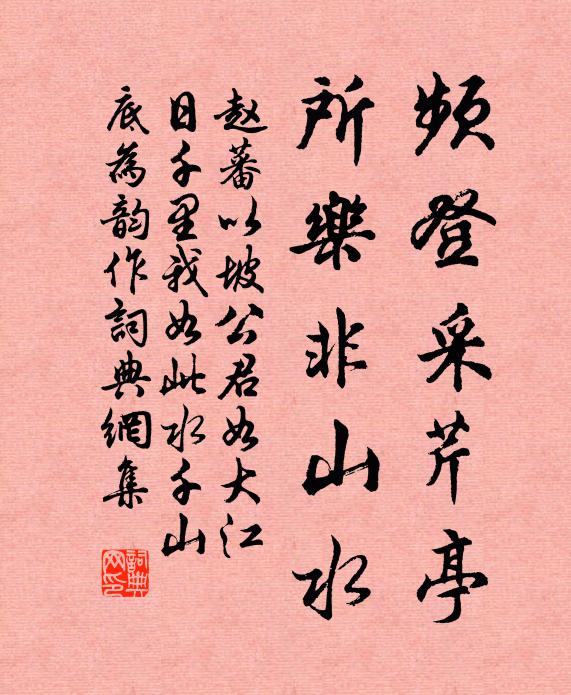 频登采芹亭
所樂非山水
赵蕃以坡公君如大江
日千里我如此水千山
底為韵作詞典網集
詞典網印